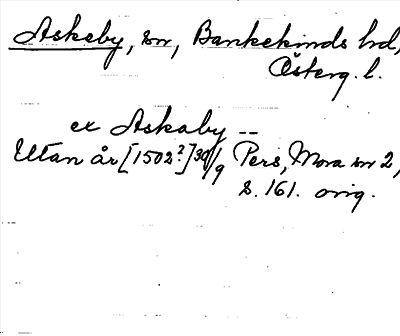 Askeby, sn, Bankekinds hd,
Österg. l.
ex Askaby --
Utan år [1502?] 30/9 Pers, Mora sn 2,
s. 161. orig.